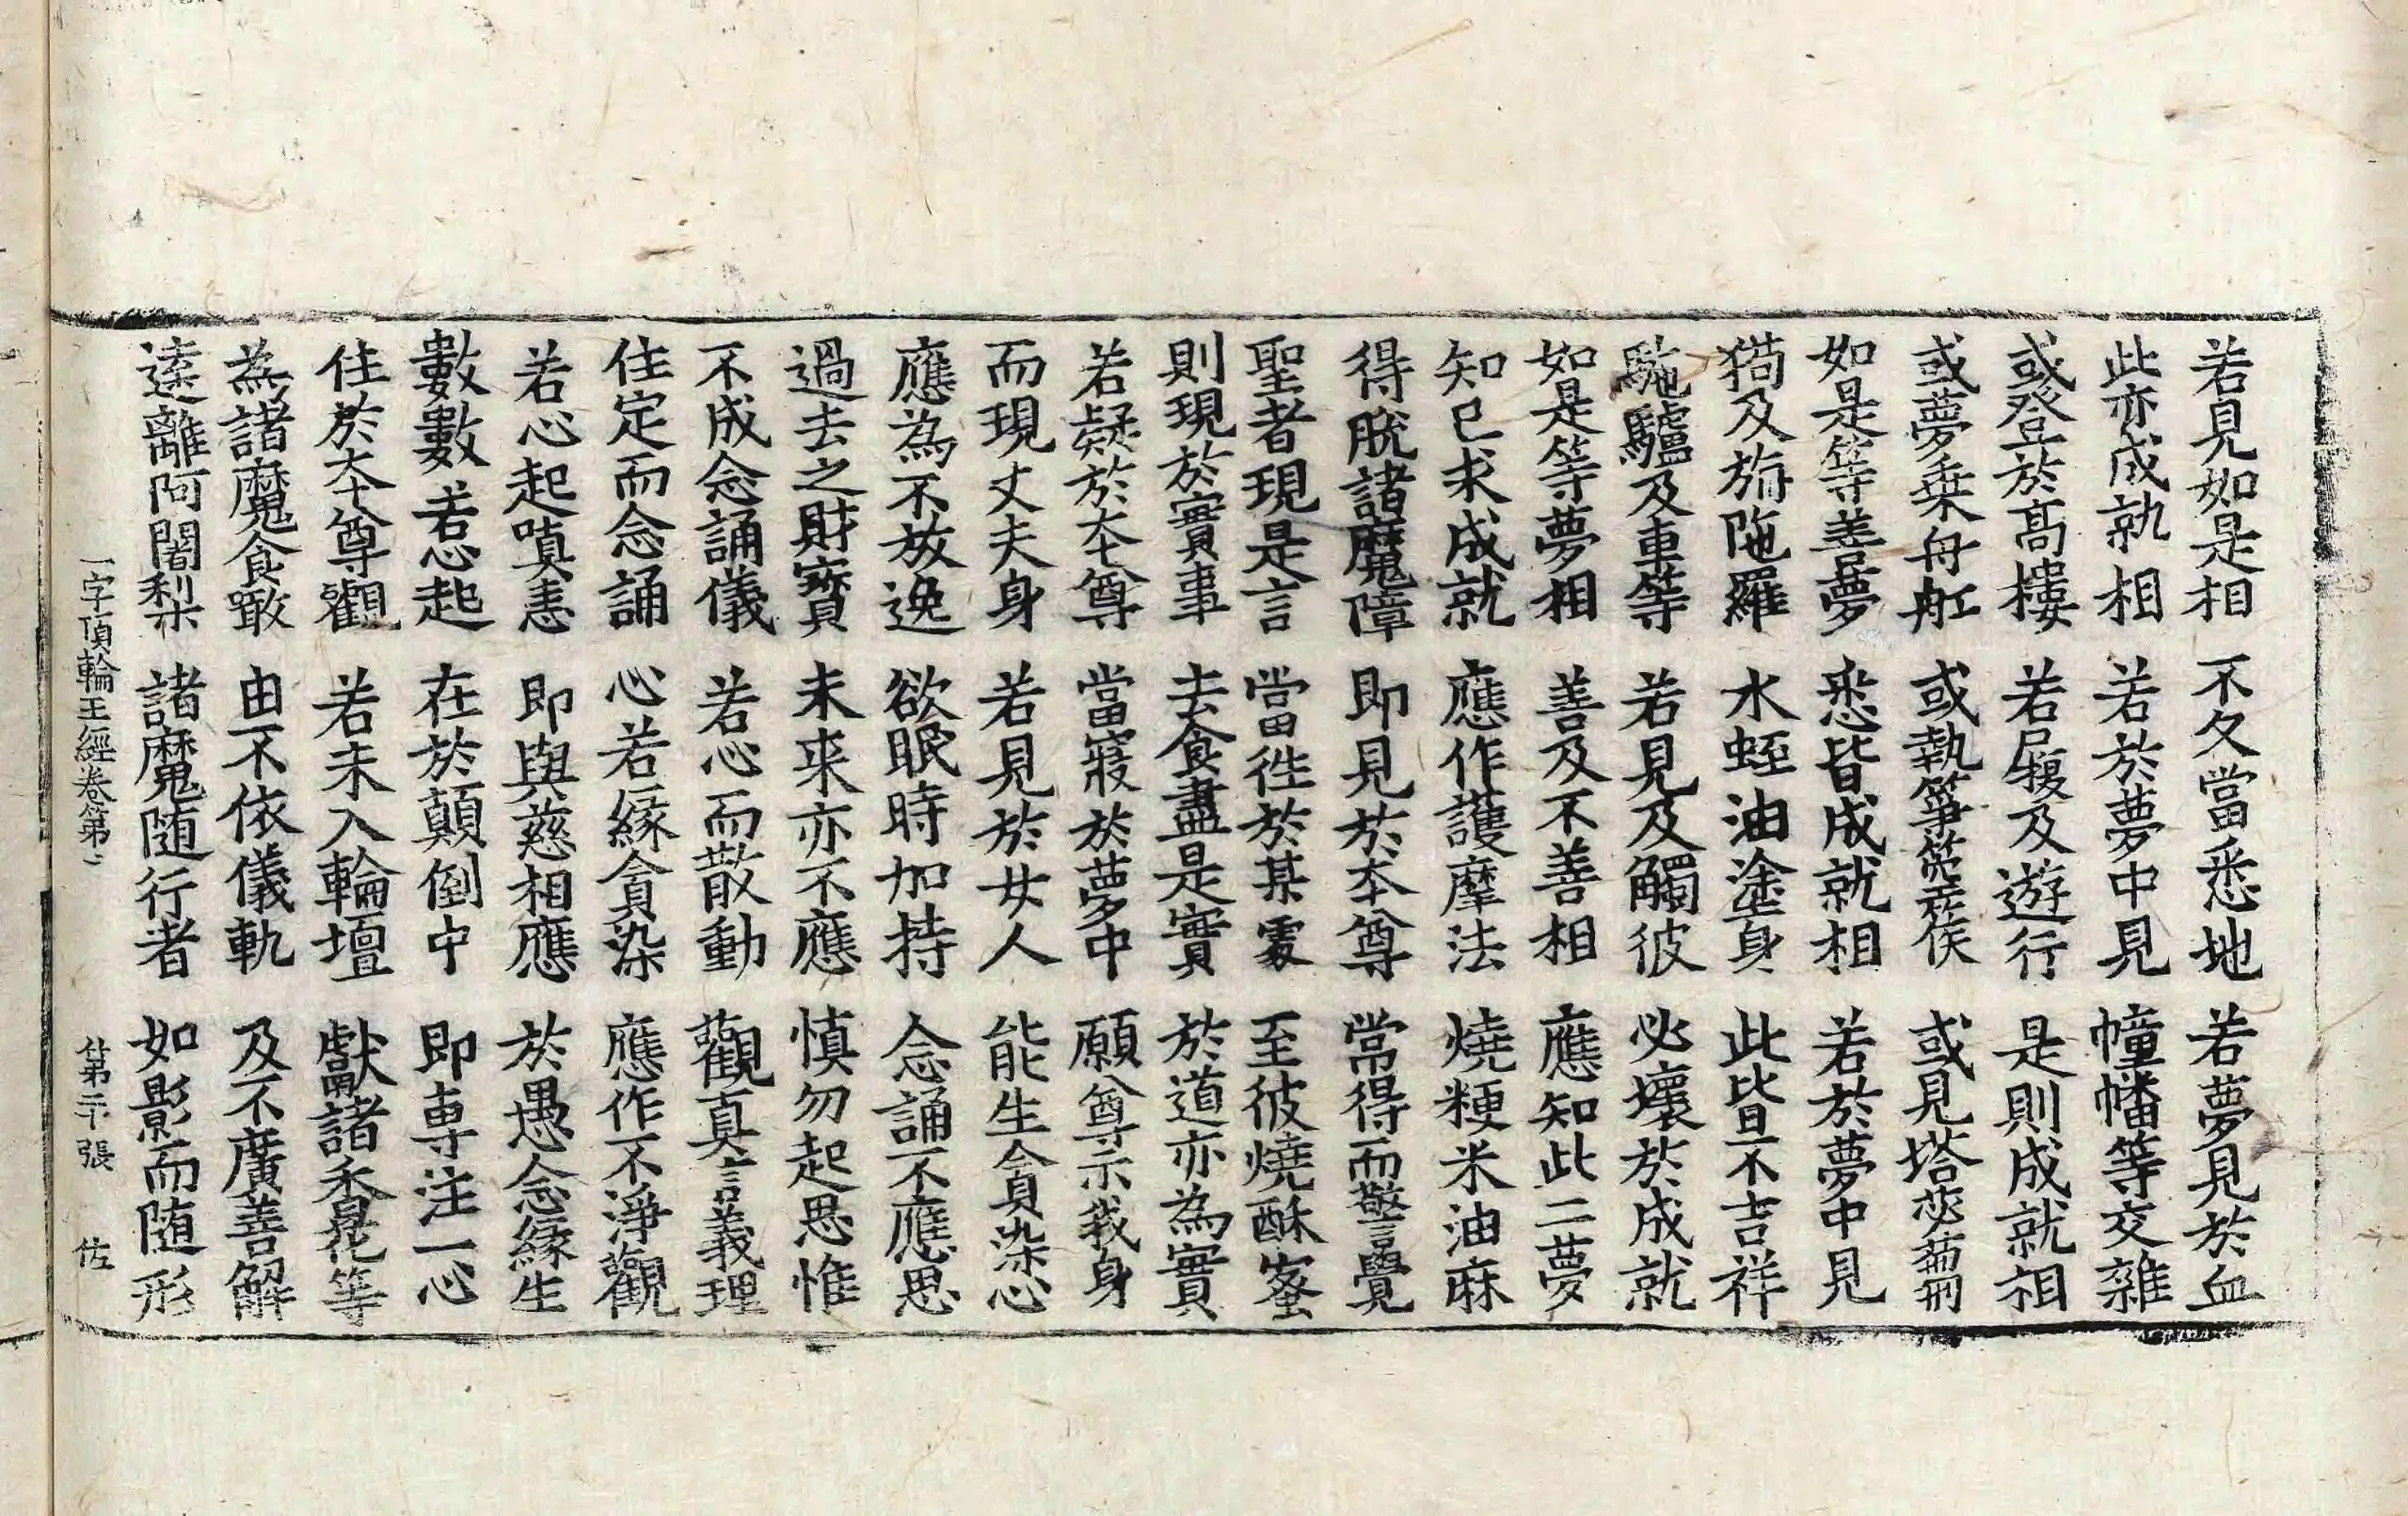 若見如是相 不久當悉地 若夢見於血
此亦成就相 若於夢中見 幢幡等交雜
或登於髙樓 若屐及遊行 是則成就相
或夢乗舟舡 或執箏箜篌 或見塔苾蒭
如是等善夢 悉皆成就相 若於夢中見
猫及旃陁羅 水蛭油塗身 此皆不吉祥
駞驢及車等 若見及觸彼 必壞於成就
如是等夢相 善及不善相 應知此二夢
知已求成就 應作護摩法 燒粳米油麻
得脫諸魔障 即見於本尊 當得而警覺
聖者現是言 當徃於某處 至彼燒酥蜜
則現於實事 去食盡是實 於道亦為實
若疑於本尊 當寢於夢中 願尊示我身
而現丈夫身 若見於女人 能生貪染心
應為不放逸 欲眠時加持 念誦不應思
過去之財寶 未来亦不應 慎勿起思惟
不成念誦儀 若心而散動 觀真言義理
住定而念誦 心若緣貪染 應作不淨觀
若心起嗔恚 即與慈相應 於愚念緣生
數數若心起 在於顛倒中 即専注一心
住於本尊觀 若未入輪壇 獻諸香花等
為諸魔食噉 由不依儀軌 及不廣善解
逺離阿闍梨 諸魔随行者 如影而随形
一字頂輪王經卷第二 第二十張 佐